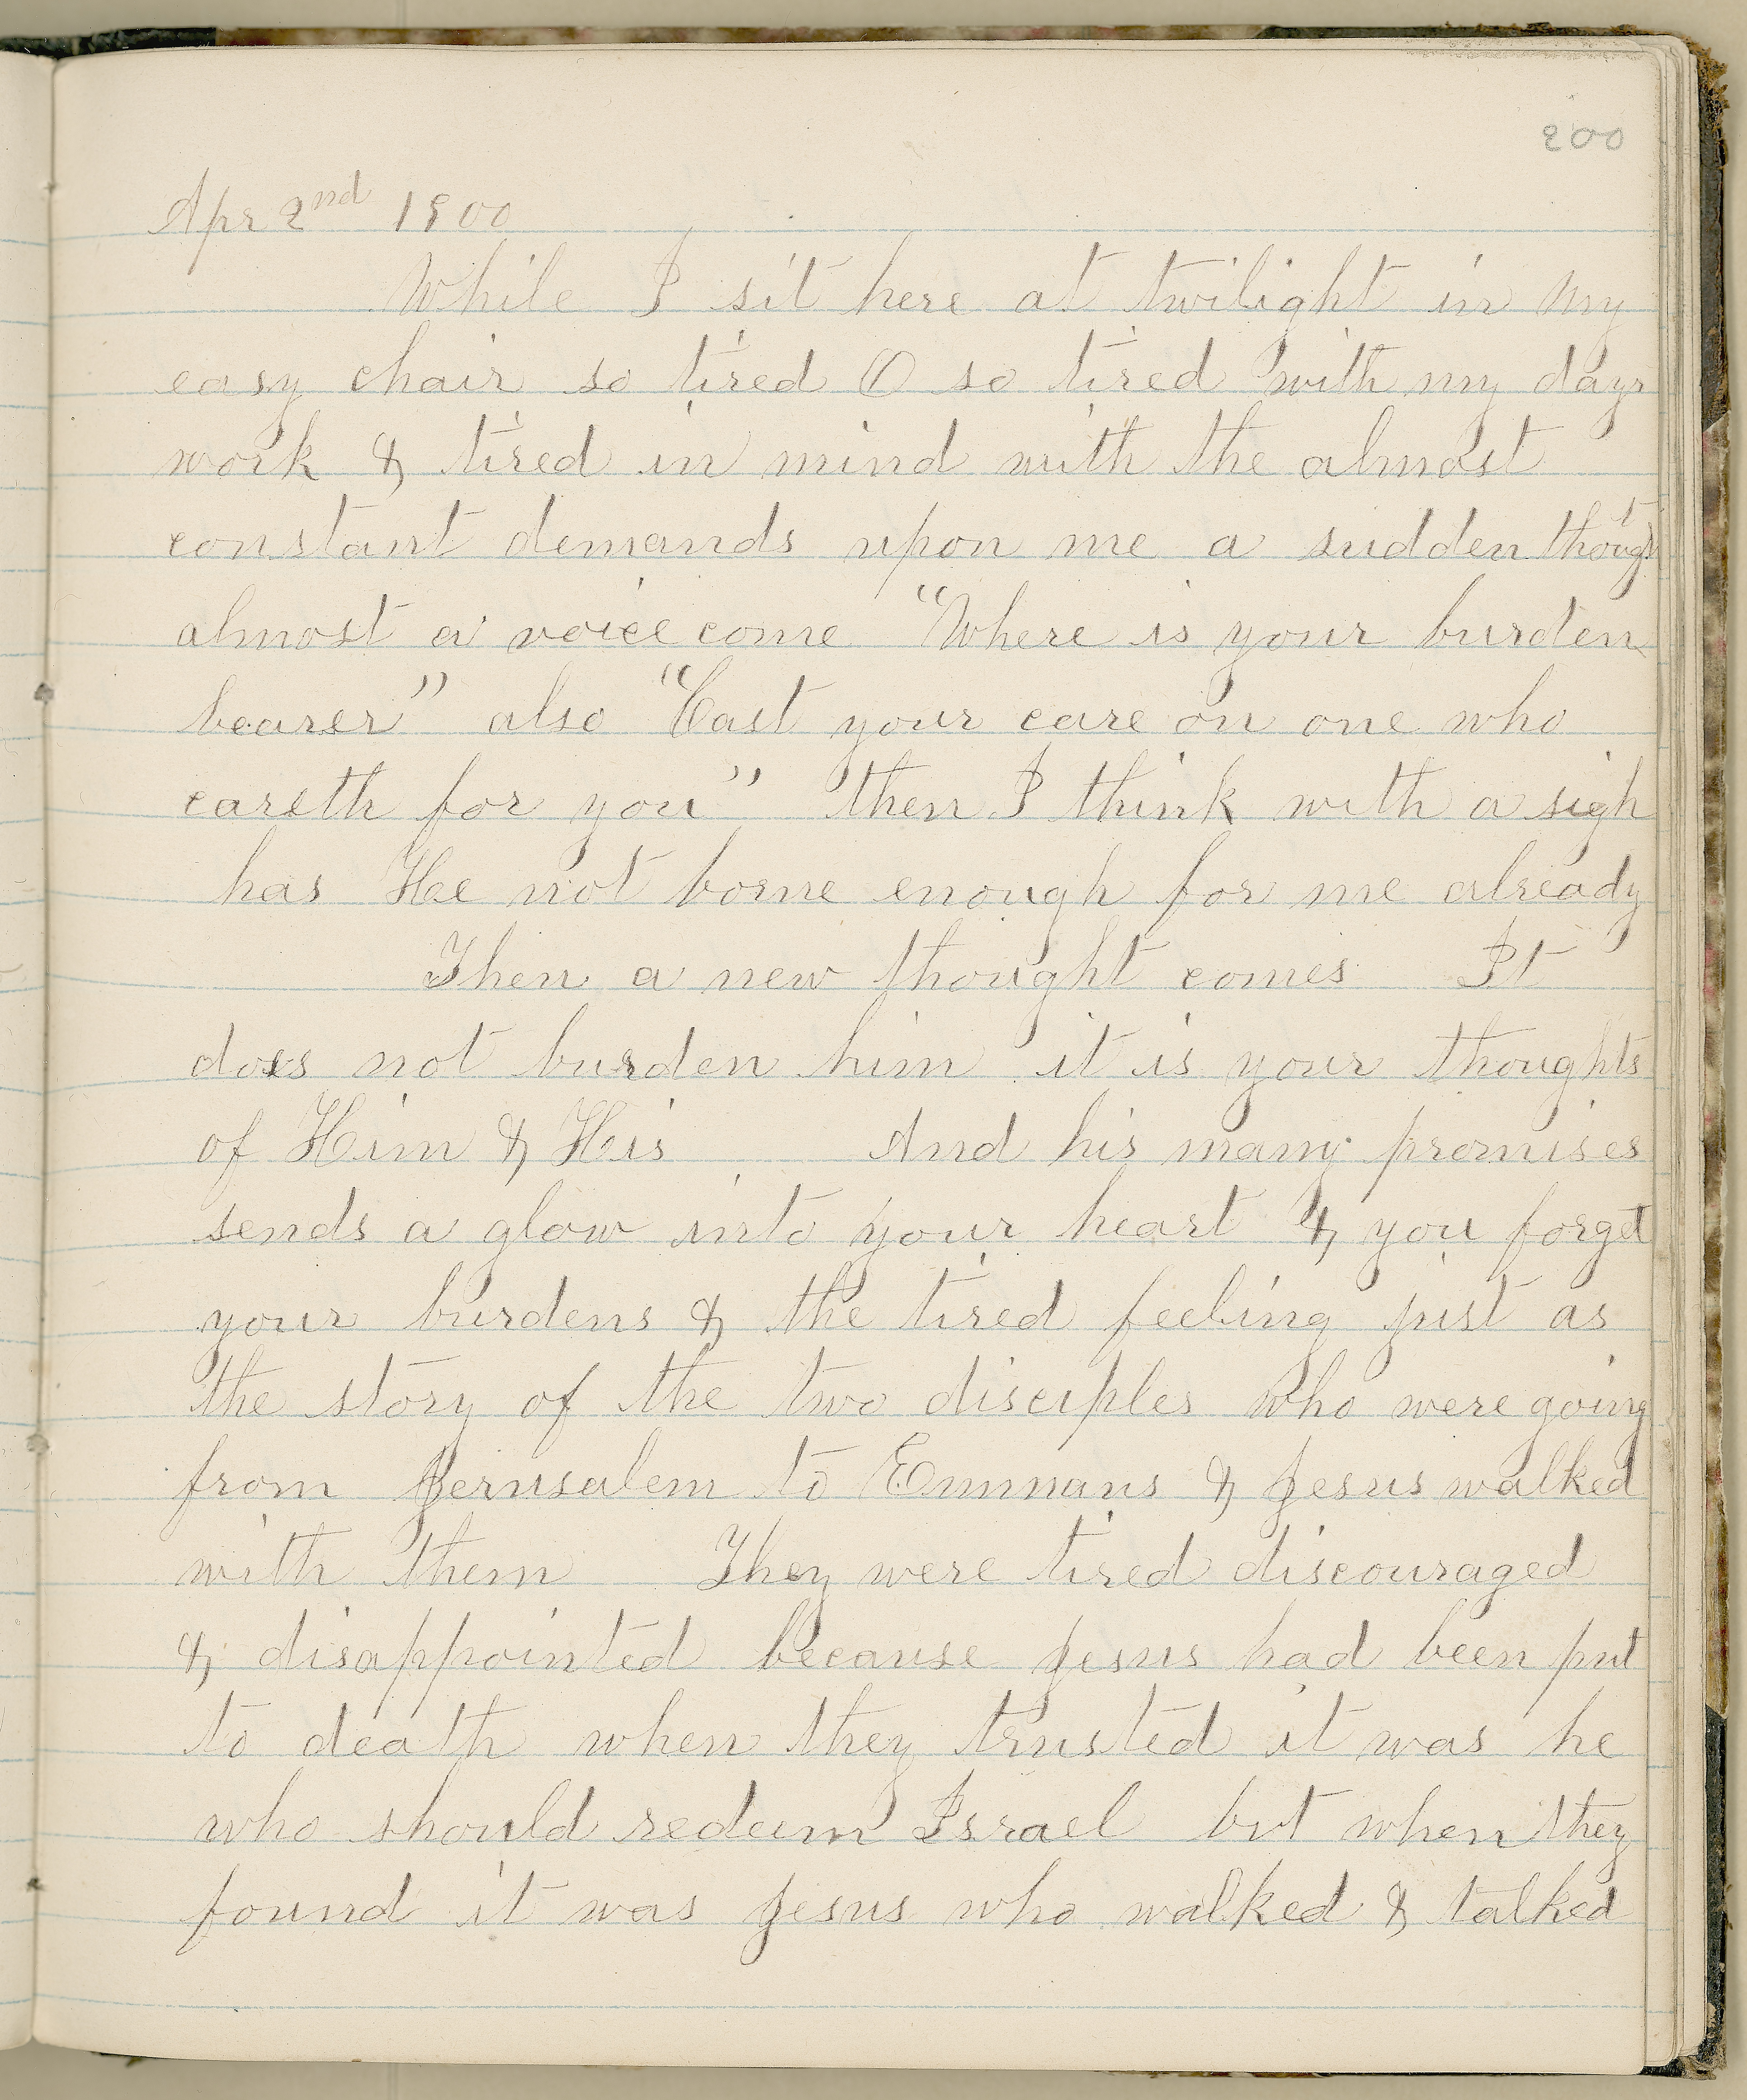 200
Apr 2nd 1900
While I sit here at twilight in my
easy chair so tired O so tired with my days
work & tired in mind with the almost
constant demands upon me a sudden thought
almost a voice come "Where is your burden
bearer" also "Cast your care on one who
careth for you" then I think with a sigh
has He not borne enough for me already
Then a new thought comes It
does not burden him it is your thoughts
of Him & His And his many promises
sends a glow into your heart & you forget
your burdens & the tired feeling just as
the story of the two disciples who were going
from Jerusalem to Emmaus & Jesus walked
with them They were tired discouraged
& disappointed because Jesus had been put
to death when they trusted it was he
who should redeem Israel but when they
found it was Jesus who walked & talked